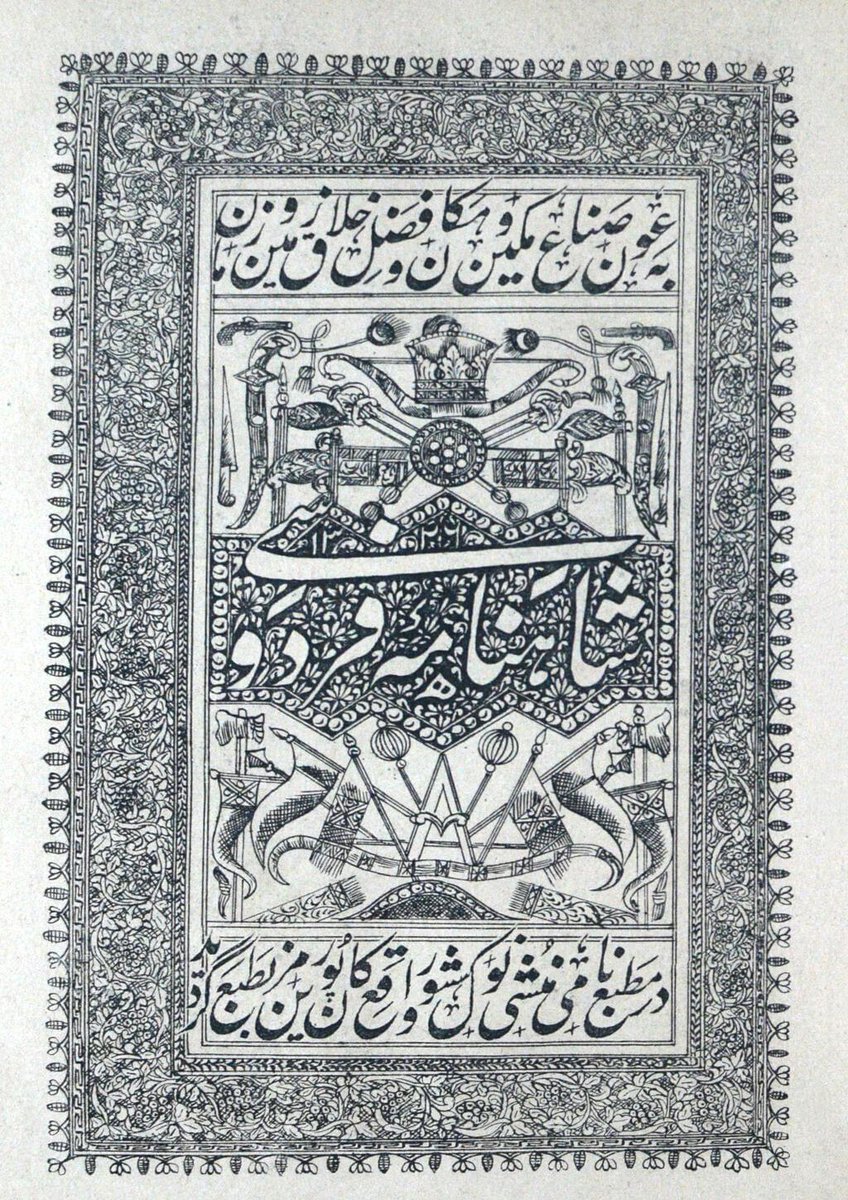 به عون صناع مکین و مکان و فضل خلاق زمین و زمان
شاهنامهٔ فردوسی
در مطبع نامی منشی نول کشور واقع کانپور مزین بطبع گردید